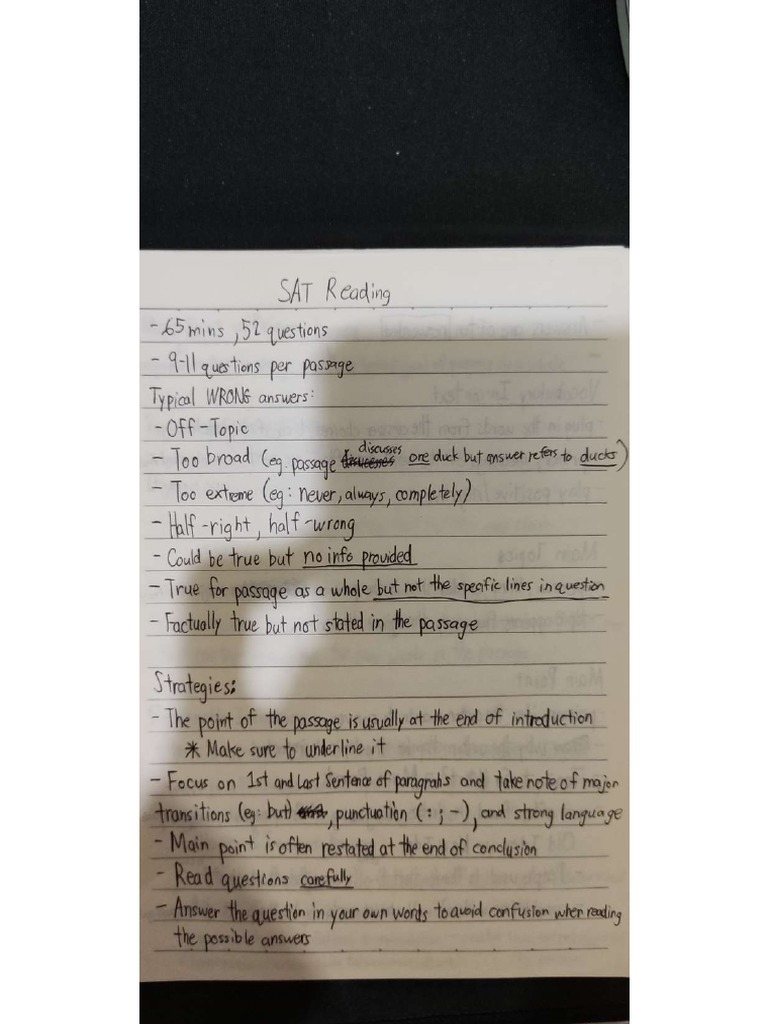 SAT Reading
- 65 mins, 52 questions
- 9-11 questions per passage
Typical WRONG answers:
- Off-Topic
- Too broad (eg. passage discusses one duck but answer refers to ducks)
- Too extreme (eg: never, always, completely)
- Half-right, half-wrong
- Could be true but no info provided
- True for passage as a whole but not the specific lines in question
- Factually true but not stated in the passage
Strategies:
- The point of the passage is usually at the end of introduction
* Make sure to underline it
- Focus on 1st and Last Sentence of paragrahs and take note of major
transitions (eg: but), punctuation (: ; -), and strong language
- Main point is often restated at the end of conclusion
- Read questions carefully
- Answer the question in your own words to avoid confusion when reading
the possible answers